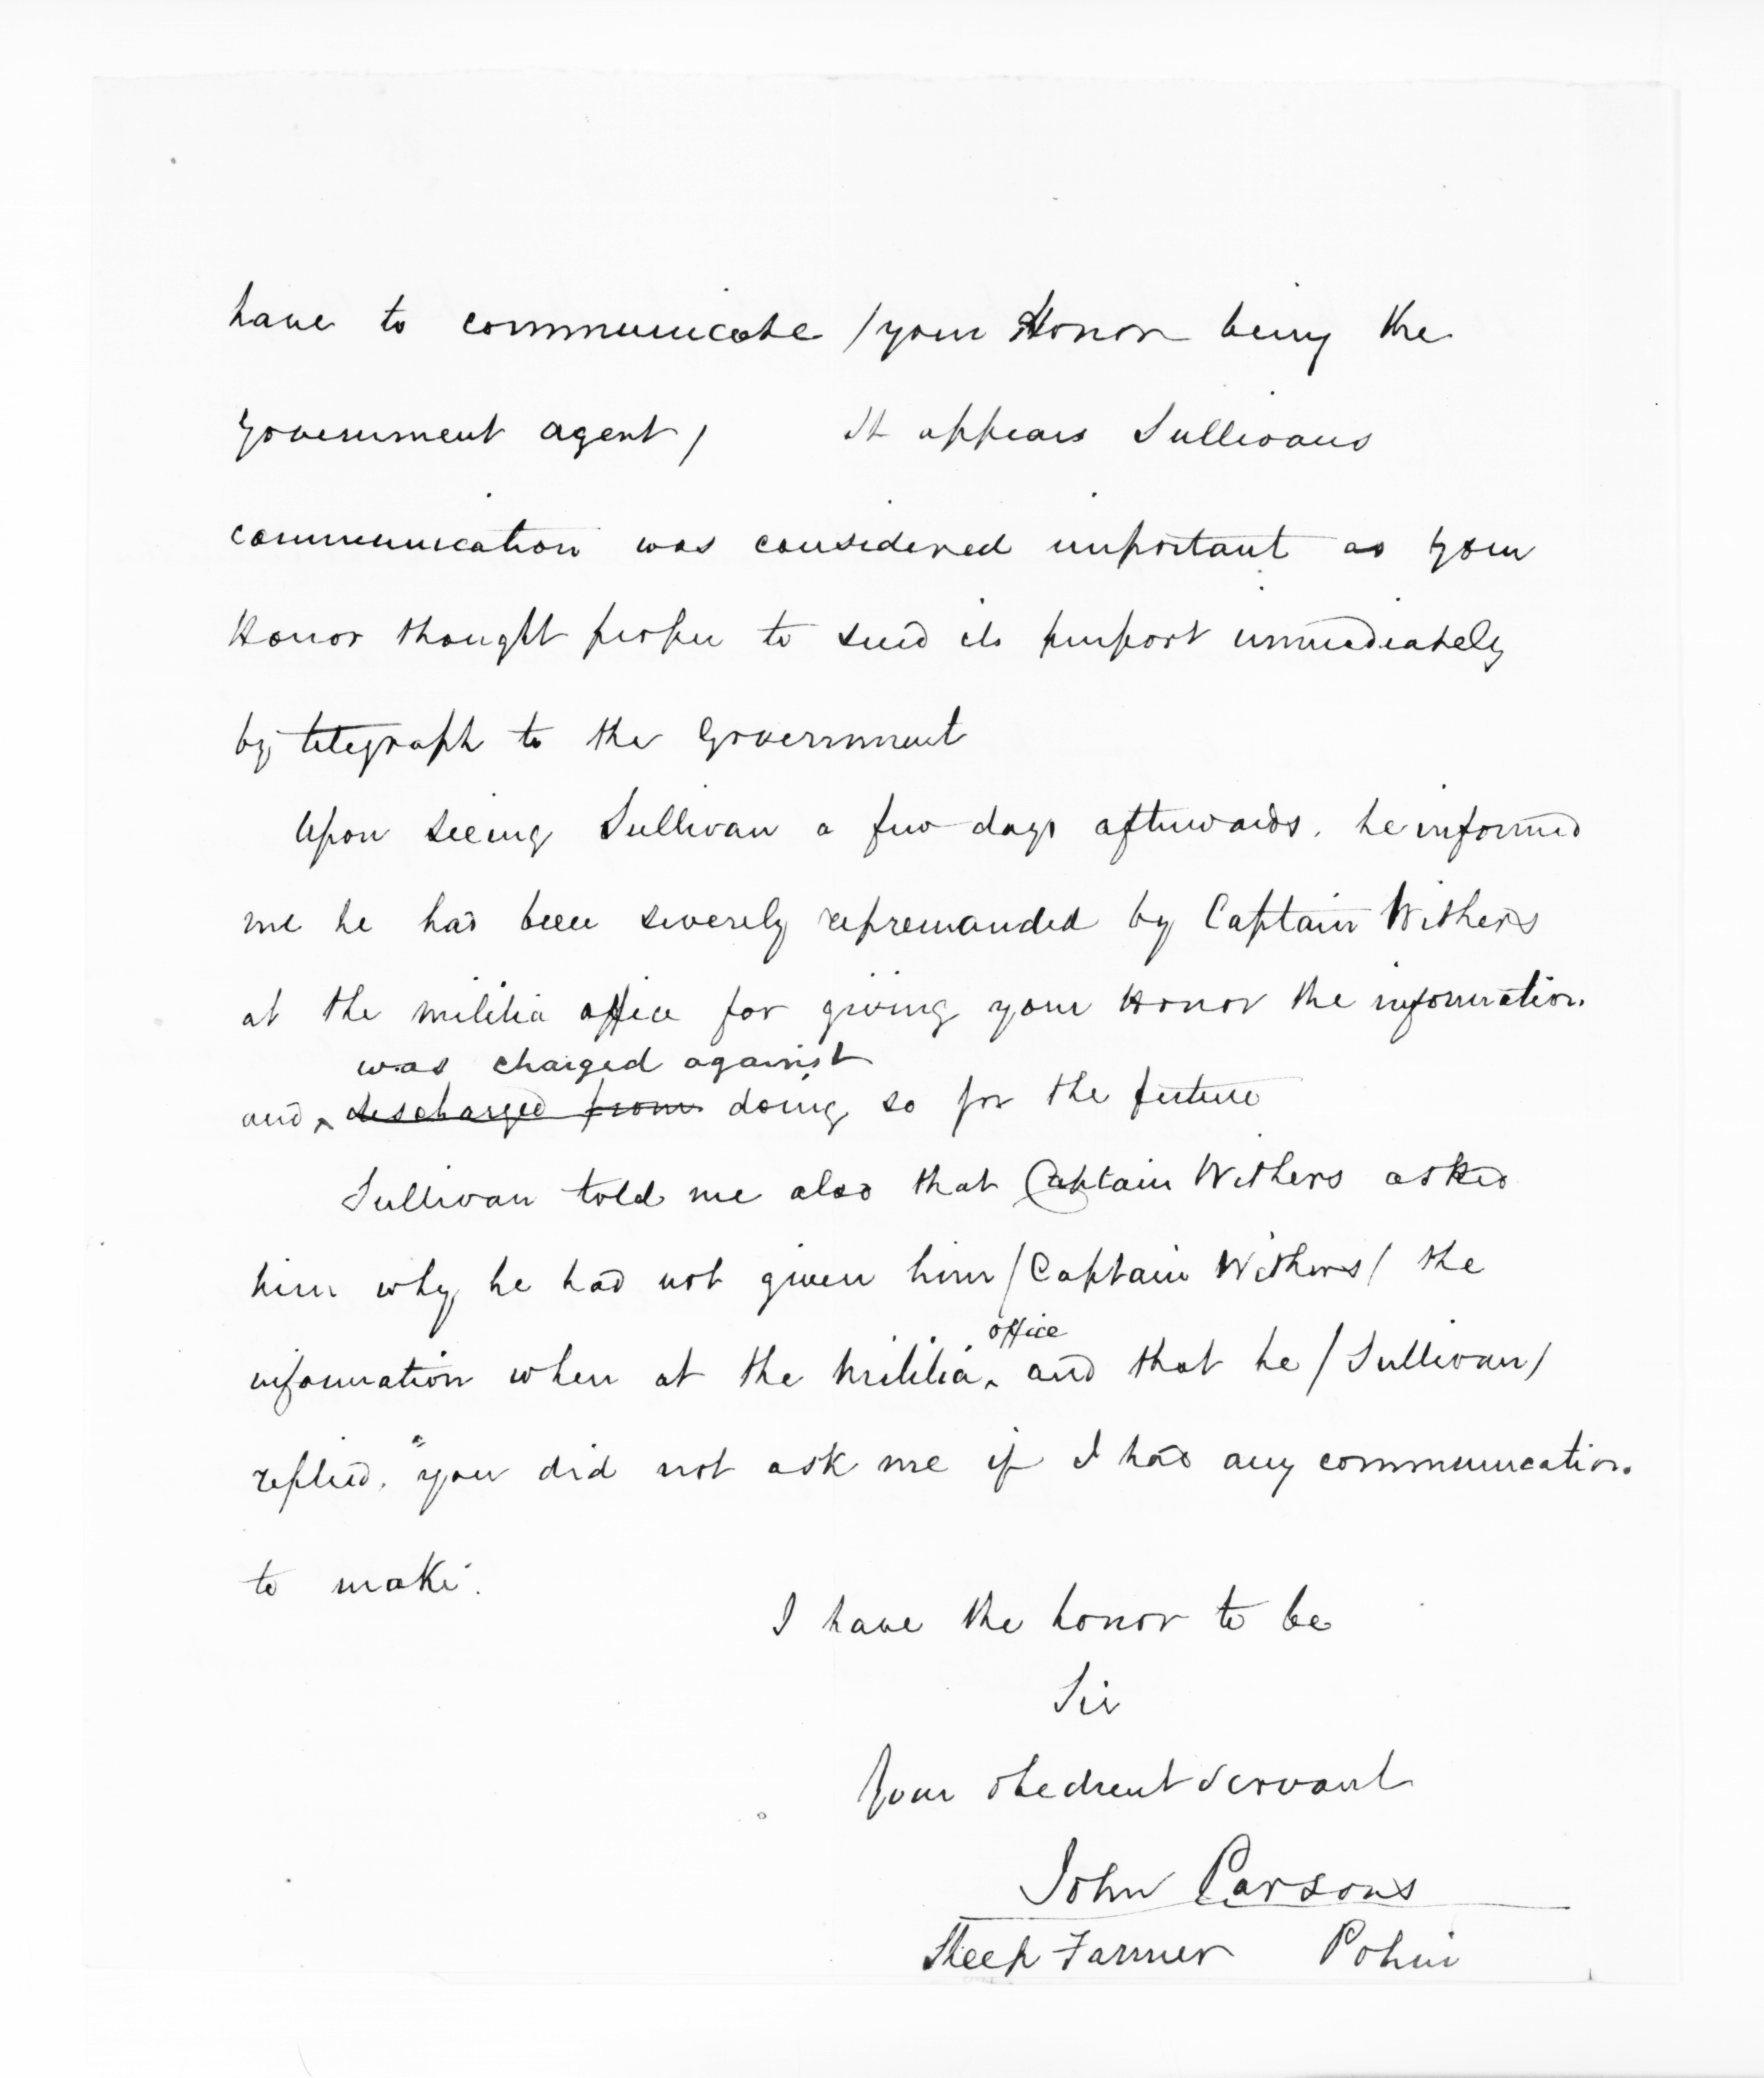 have to communicate / your Honor being the
Government agent /    It appears Sullivans
communication was considered important as your
Honor thought proper to send its purport immediately
by telegraph to the Government
Upon seeing Sullivan a few days afterwards, he informed
me he had been severely repremanded by Captain Withers
at the militia office for giving your Honor the information
was charged against
and ^ discharged from doing so for the future
Sullivan told me also that Captain Withers asked
him why he had not given him / Captain Withers / the
office
information when at the Militia ^ and that he / Sullivan /
replied, "you did not ask me if I had any communication
to make.
I have the honor to be
Sir
Your obedient servant
John Parsons
Sheep Farmer Pohui